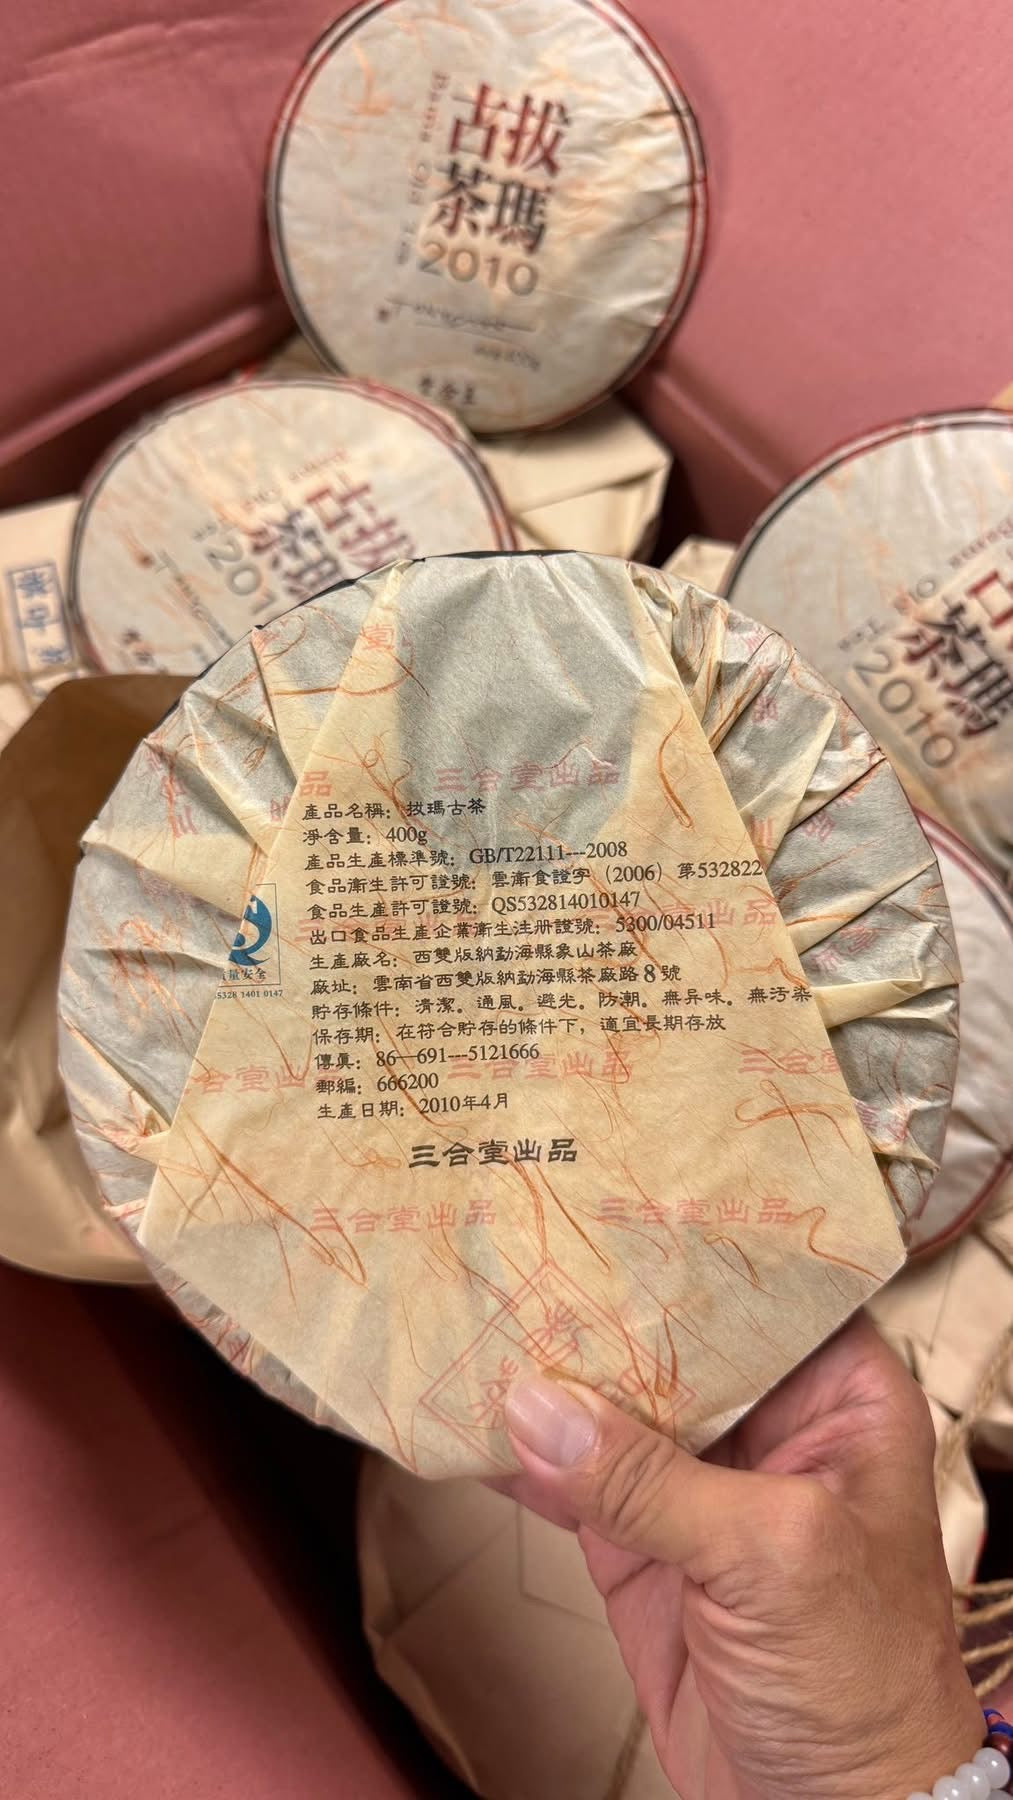 拔瑪
古茶
2010
古拔
茶瑪
三合堂出品
產品名稱：拔瑪古茶
凈含量：400g
產品生產標準號：GB/T22111---2008
食品衛生許可證號：雲衛食證字（2006）第532822
食品生產許可證號：QS532814010147
出口食品生產企業衛生注册證號：5300/04511
生產廠名：西雙版納勐海縣象山茶廠
廠址：雲南省西雙版納勐海縣茶廠路8號
貯存條件：清潔。通風。避光。防潮。無异味。無汚染
保存期：在符合貯存的條件下，適宜長期存放
傳真：86—691---5121666
郵編：666200
生產日期：2010年4月
三合堂出品
量安全
S5328 1401 0147
三合堂出品
三合堂出品
三合堂出品
茶瑪
2010